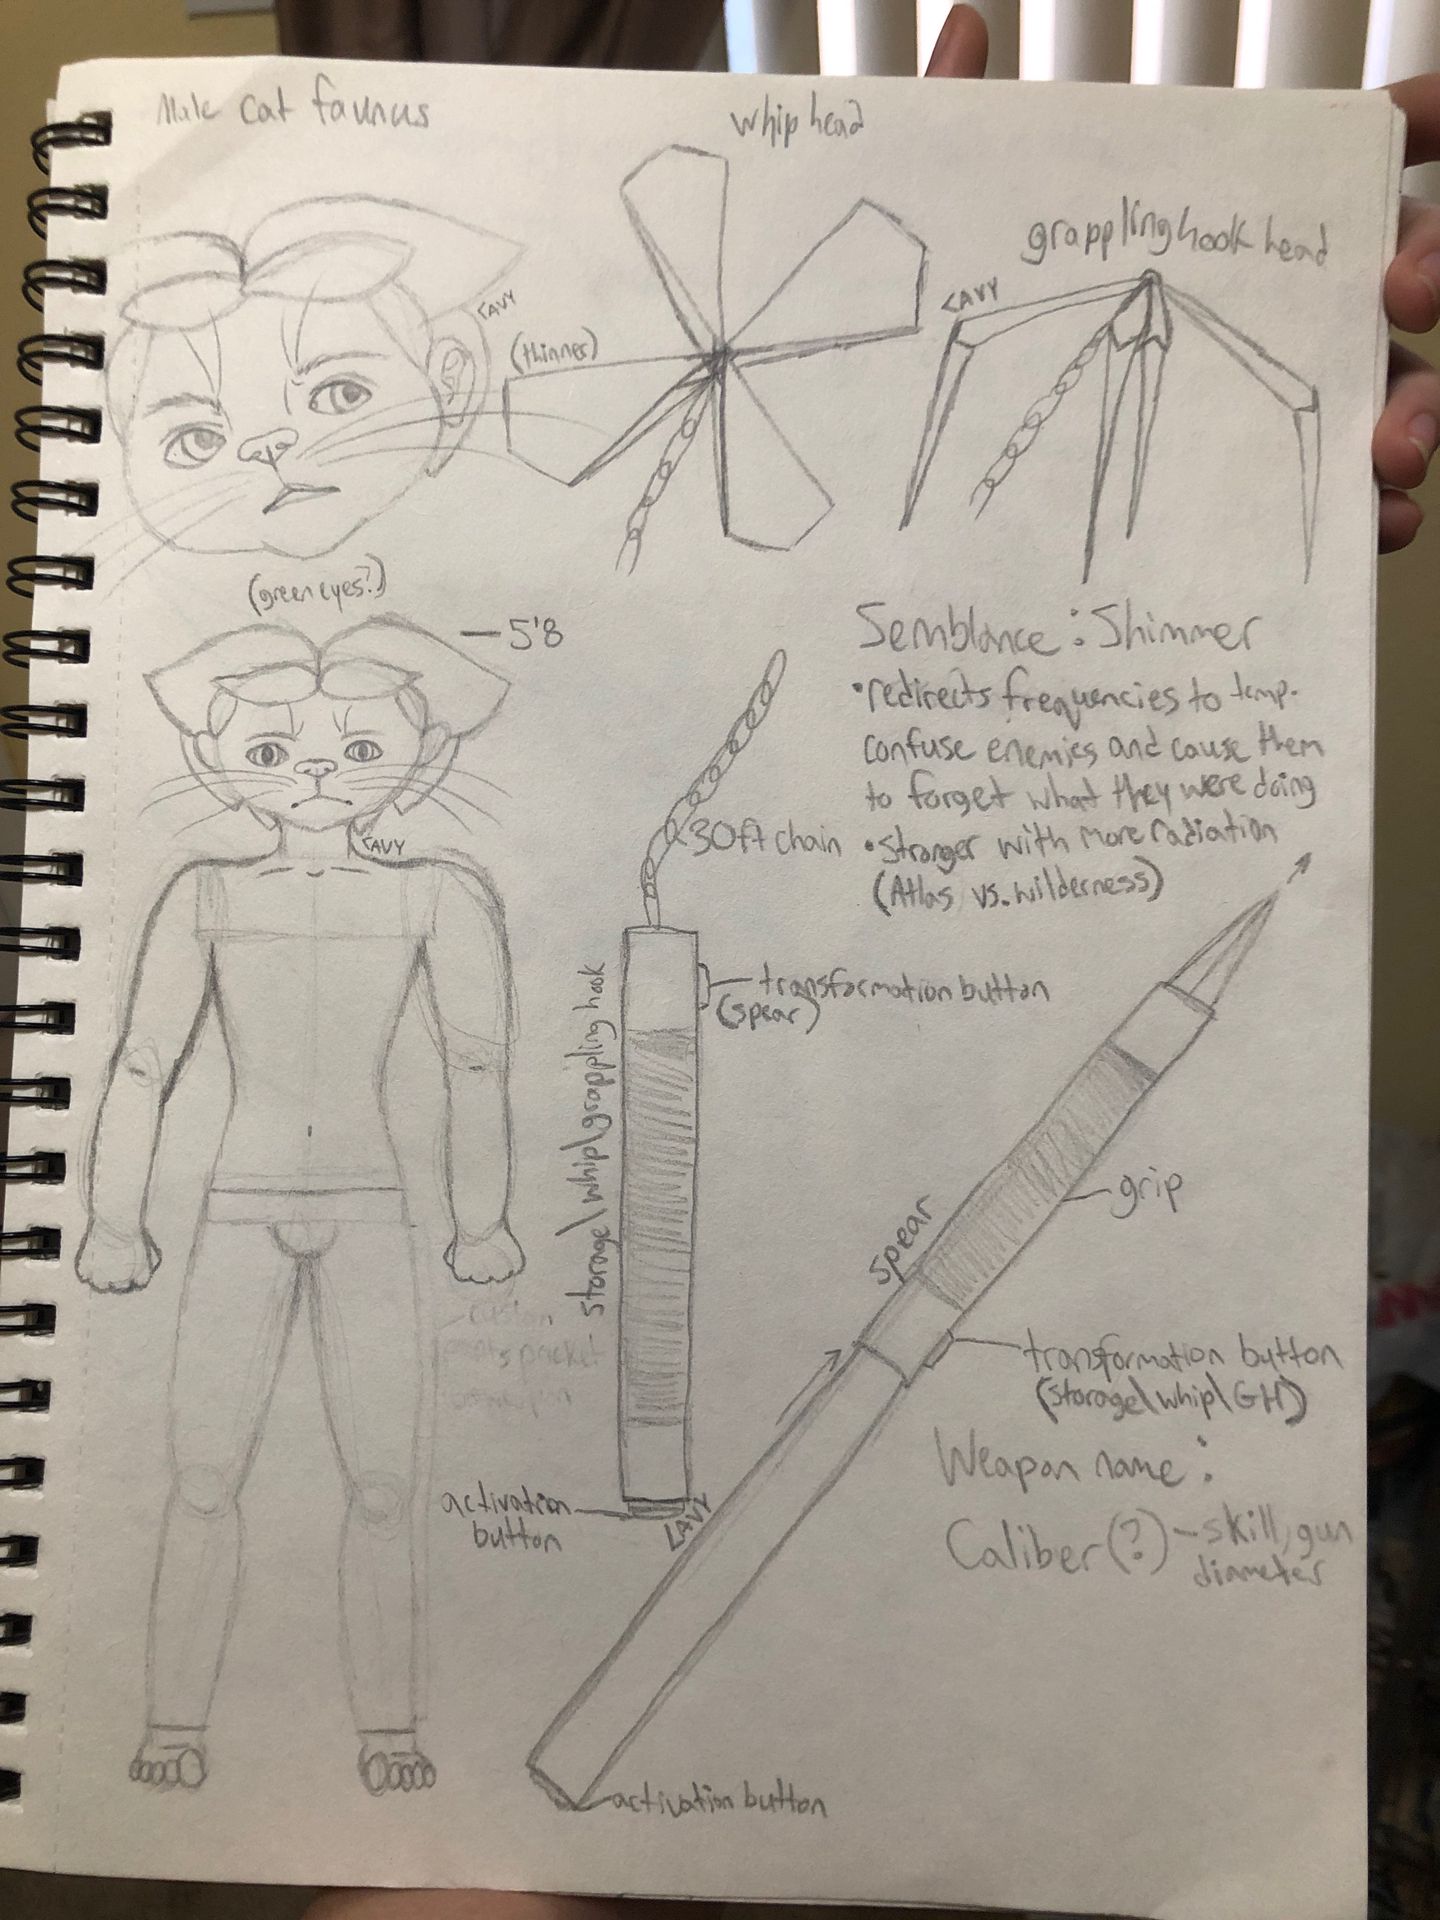 Male cat faunus
whip head
grappling hook head
CAVY
CAVY
(thinner)
(green eyes?)
5'8
Semblance: Shimmer
•redirects frequencies to temp.
confuse enemies and cause them
to forget what they were doing
•stronger with more radiation
(Atlas vs. wilderness)
CAVY
30ft chain
transformation button
(spear)
storage\whip\grappling hook
grip
spear
transformation button
(storage\whip\GH)
activation
button
CAVY
Weapon name:
Caliber(?) - skill, gun
diameter
activation button